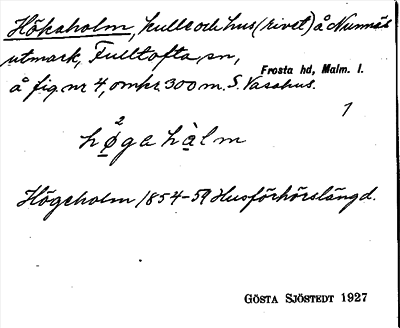 Höksholm, kulle och hus (rivet) å Nunnäs
utmark, Fulltofta sn,
Frosta hd, Malm. l.
å fig. nr 4, omkr. 300 m. S. Vasahus.
1
2
høgahàlm
Högsholm 1854-59 Husförhörslängd.
GÖSTA SJÖSTEDT 1927